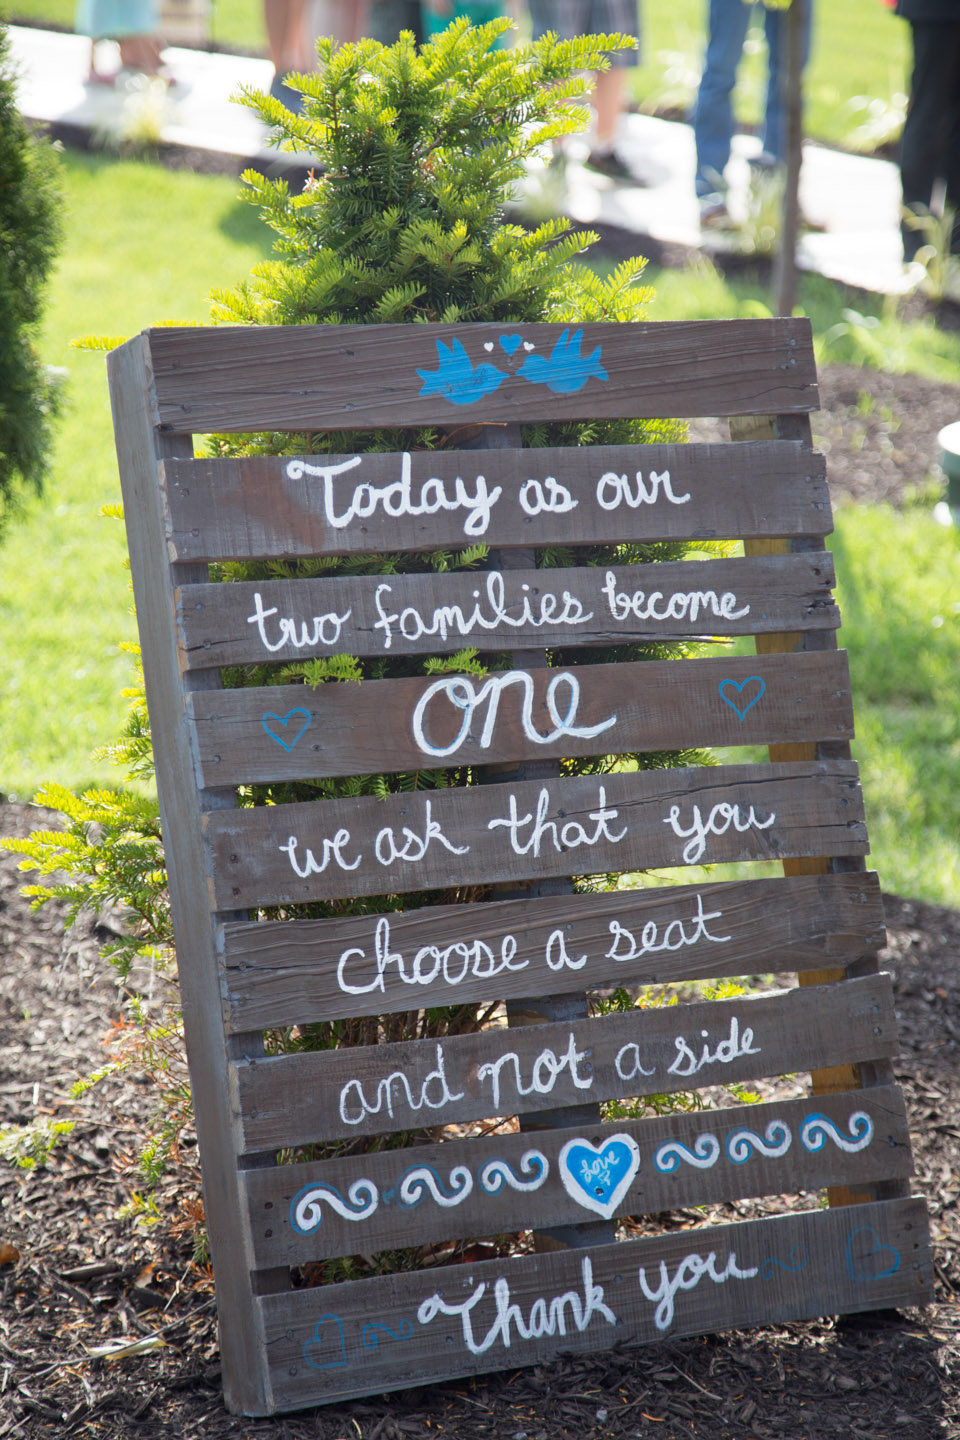 Today as our
two families become
one
we ask that you
choose a seat
and not a side
love
Thank you